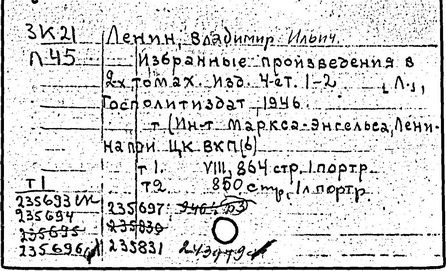 3К21 Ленин, Владимир Ильич.
П45 Избранные произведения в
2х томах. Изд. 4-ет. 1-2 , Л.,
Госполитиздат 1946.
т (Ин-т Маркса-Энгельса, Лени-
на при ЦК ВКП(б)
т 1. VIII, 864 стр, 1 портр.
т 2. 850 стр, 1л портр.
Т1
235693
235694 235697
235695 235830
235696 235831